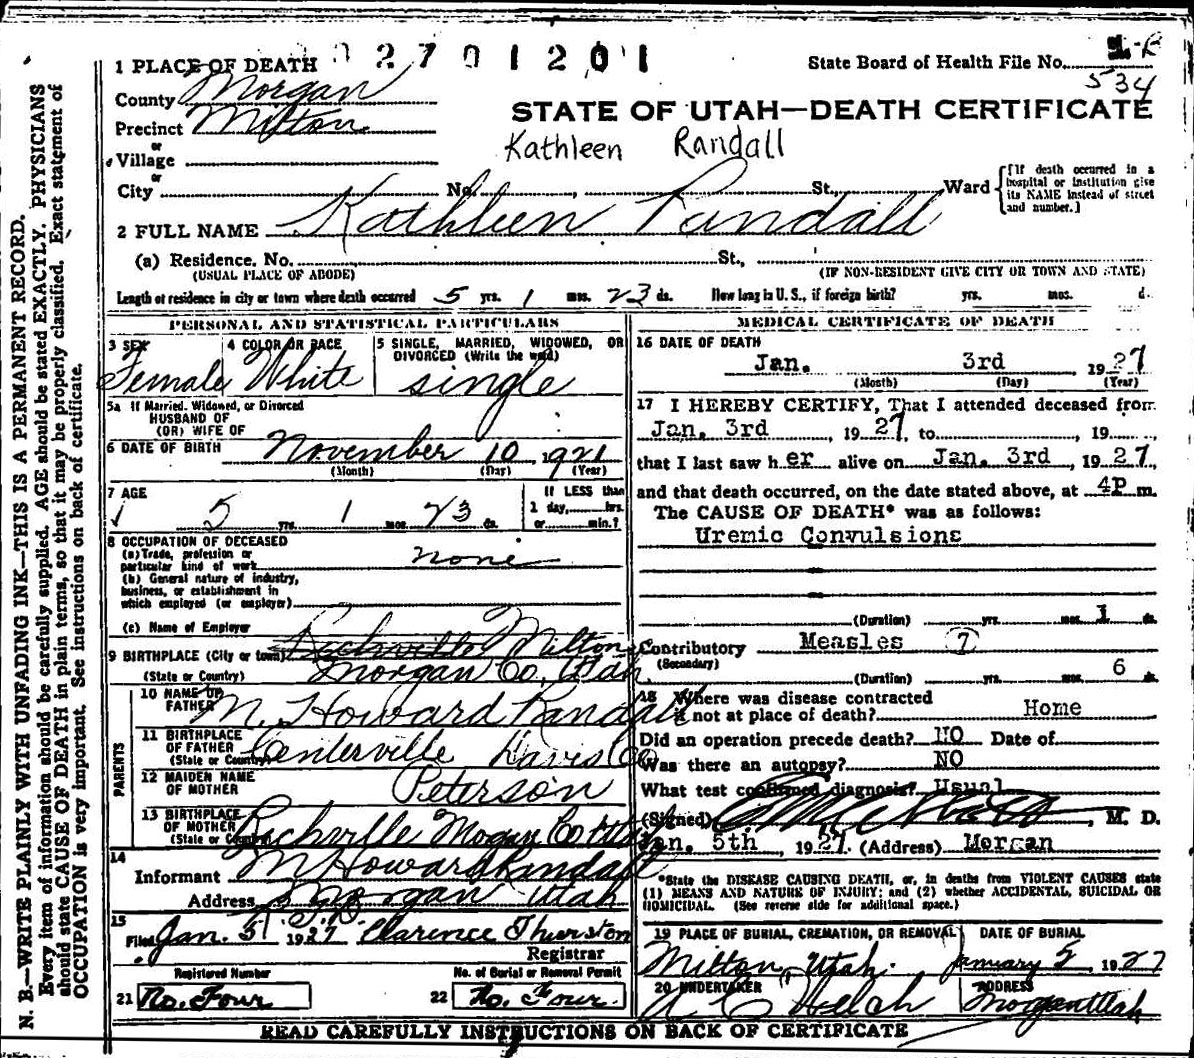 2 7 0 1 2 0 1
1 PLACE OF DEATH
State Board of Health File No.
534
County Morgan
STATE OF UTAH—DEATH CERTIFICATE
Precinct Milton
Kathleen Randall
or
Village
or
City No. , St., Ward
{[If death occurred in a
hospital or institution give
its NAME instead of street
and number.]
2 FULL NAME Kathleen Randall
(a) Residence. No. St.,
(USUAL PLACE OF ABODE) (IF NON-RESIDENT GIVE CITY OR TOWN AND STATE)
Length of residence in city or town where death occurred 5 yrs. 1 mos. 23 ds. How long in U.S., if foreign birth? yrs. mos. d.
PERSONAL AND STATISTICAL PARTICULARS
3 SEX
Female
4 COLOR OR RACE
White
5 SINGLE, MARRIED, WIDOWED, OR
DIVORCED (Write the word)
single
5a If Married, Widowed, or Divorced
HUSBAND OF
(OR) WIFE OF
6 DATE OF BIRTH November 10 1921
(Month) (Day) (Year)
7 AGE
5 yrs. 1 mos. 23 ds.
If LESS than
1 day, hrs.
or min.?
8 OCCUPATION OF DECEASED
(a) Trade, profession or
particular kind of work none
(b) General nature of industry,
business, or establishment in
which employed (or employer)
(c) Name of Employer
9 BIRTHPLACE (City or town) Milton
(State or Country) Morgan Co, Utah
PARENTS
10 NAME OF
FATHER M. Howard Randall
11 BIRTHPLACE
OF FATHER
(State or Country) Centerville Davis Co
12 MAIDEN NAME
OF MOTHER Peterson
13 BIRTHPLACE
OF MOTHER
(State or Country) Richville Mogan Co Utah
14
Informant M Howard Randall
Address Morgan Utah
15
Filed Jan. 5, 1927 Clarence Thurston
Registrar
Registered Number
21 No. Four
No. of Burial or Removal Permit
22 No. Four.
MEDICAL CERTIFICATE OF DEATH
16 DATE OF DEATH
Jan. 3rd 1927
(Month) (Day) (Year)
17 I HEREBY CERTIFY, That I attended deceased from
Jan. 3rd , 1927, to , 19 ,
that I last saw her alive on Jan. 3rd , 1927,
and that death occurred, on the date stated above, at 4P m.
The CAUSE OF DEATH* was as follows:
Uremic Convulsions
(Duration) yrs. mos. 1 ds.
Contributory Measles (7)
(Secondary)
(Duration) yrs. mos. 6 ds.
18 Where was disease contracted
if not at place of death? Home
Did an operation precede death? NO Date of
Was there an autopsy? NO
What test confirmed diagnosis? Usual
(Signed) , M. D.
Jan. 5th , 1927. (Address) Morgan
*State the DISEASE CAUSING DEATH, or, in deaths from VIOLENT CAUSES state
(1) MEANS AND NATURE OF INJURY; and (2) whether ACCIDENTAL, SUICIDAL OR
HOMICIDAL. (See reverse side for additional space.)
19 PLACE OF BURIAL, CREMATION, OR REMOVAL
Milton, Utah.
DATE OF BURIAL
January 5, 1927
20 UNDERTAKER
ADDRESS
Morgan Utah
READ CAREFULLY INSTRUCTIONS ON BACK OF CERTIFICATE
N. B.—WRITE PLAINLY WITH UNFADING INK—THIS IS A PERMANENT RECORD.
Every item of information should be carefully supplied. AGE should be stated EXACTLY. PHYSICIANS
should state CAUSE OF DEATH in plain terms, so that it may be properly classified. Exact statement of
OCCUPATION is very important. See instructions on back of certificate.